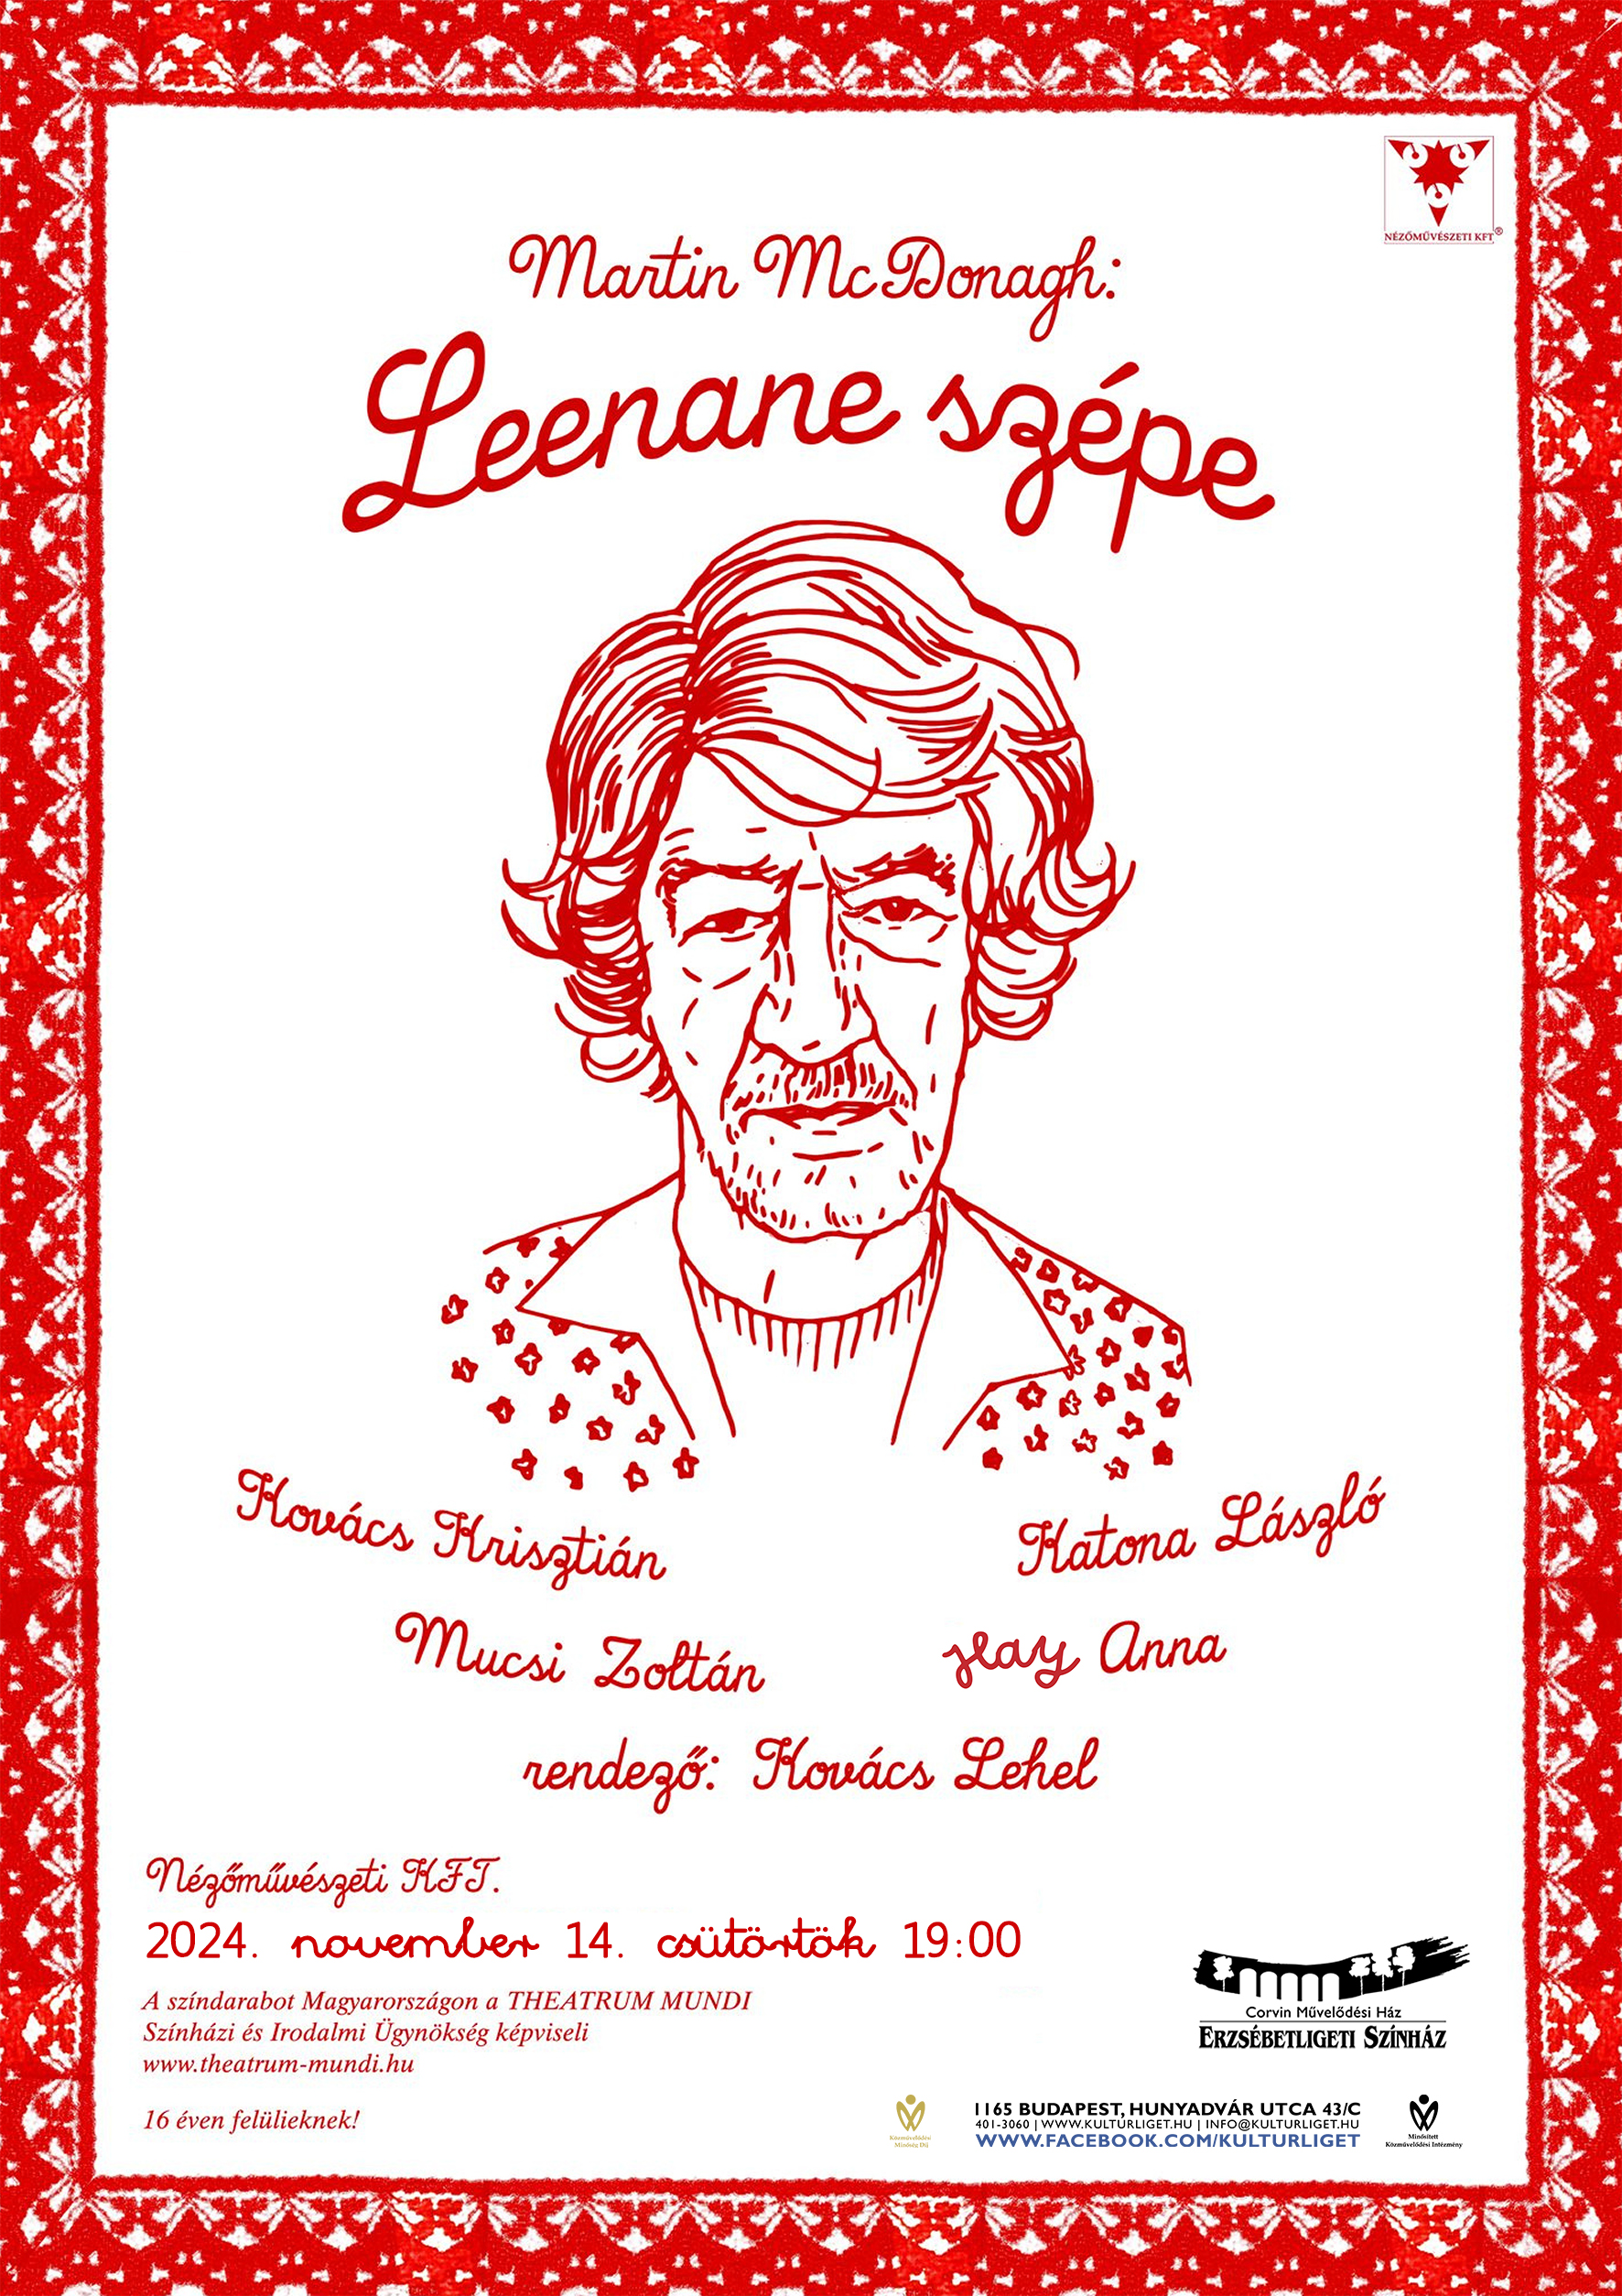 NÉZŐMŰVÉSZETI KFT®
Martin McDonagh:
Leenane szépe
Kovács Krisztián
Katona László
Mucsi Zoltán
Hay Anna
rendező: Kovács Lehel
Nézőművészeti KFT.
2024. november 14. csütörtök 19:00
A színdarabot Magyarországon a THEATRUM MUNDI
Színházi és Irodalmi Ügynökség képviseli
www.theatrum-mundi.hu
16 éven felülieknek!
Corvin Művelődési Ház
ERZSÉBETLIGETI SZÍNHÁZ
Közművelődési
Minőség Díj
1165 BUDAPEST, HUNYADVÁR UTCA 43/C
401-3060 | WWW.KULTURLIGET.HU | INFO@KULTURLIGET.HU
WWW.FACEBOOK.COM/KULTURLIGET
Minősített
Közművelődési Intézmény